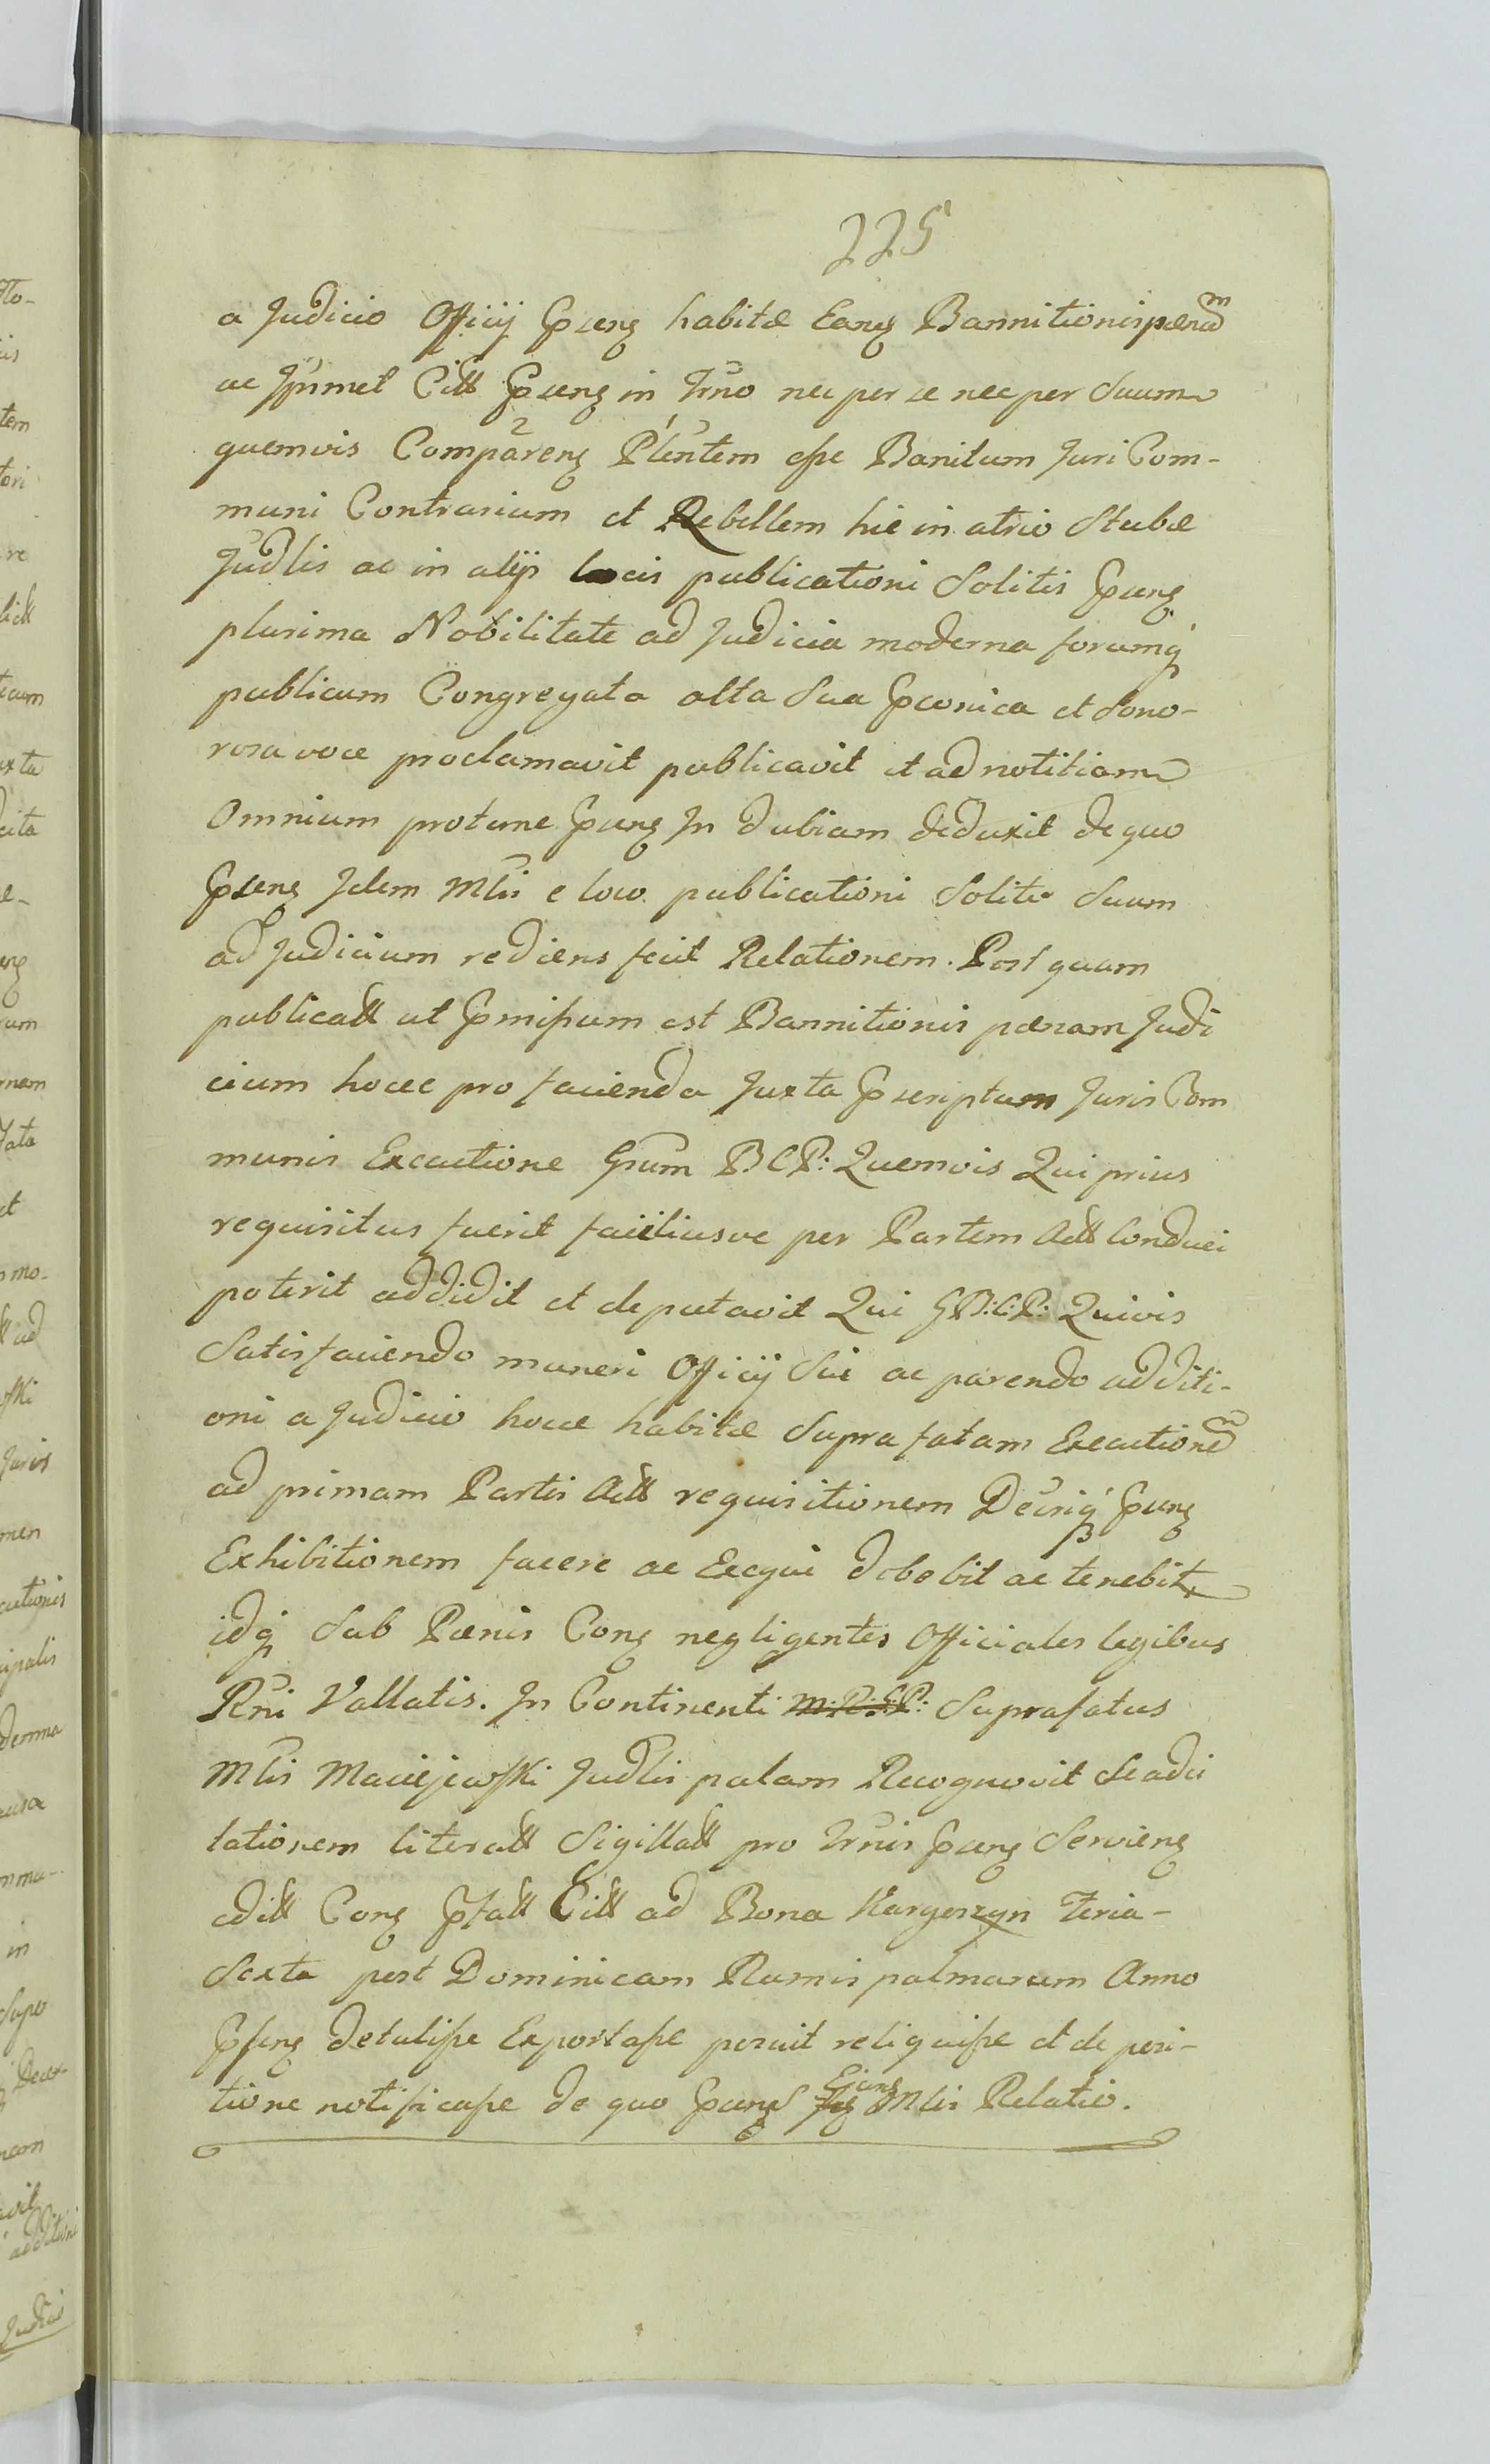 225
a Judicio Officij Pscns habitæ Eans Bannitionis pænam
ac Jpsmet Citt Pscns in Trno nec per se nec per Suum
quemvis Comparens Plentem esse Banitum Juri Com-
muni Contrarium et Rebellem hic in atrio Stubæ
Judlis ac in alijs locis publicationi Solitis Pscns
plurima Nobilitate ad Judicia moderna forumq
publicum Congregata alta Sua Pconica et Sono-
rosa voce proclamavit publicavit et ad notitiam
Omnium protunc Pscns In dubiam deduxit de quo
Pscns Idem Mlis e loco publicationi Solito Suum
ad Judicium rediens fecit Relationem. Post quam
publicatt ut Pmissum est Bannitionis pænam Judi
cium hocce pro facienda Juxta Pscriptum Juris Com
munis Executione Gsum B C P: Quemvis Qui prius
requisitus fuerit faciliusve per Partem Actt Conduci
poterit addidit et deputavit Qui G B: C: P: Quivis
Satisfaciendo muneri Officij Sui ac parendo additi-
oni a Judicio hocce habitæ Supra fatam Executionem
ad primam Partis Actt requisitionem Decrīq Pscns
Exhibitionem facere ac Exequi debebit ac tenebitr
idq Sub Pænis Cons negligentes Officiales legibus
Rni Vallatis. In Continenti Suprafatus
Mlis Maciejewski Judlis palam Recognovit Se adci
tationem literatt Sigillatt pro Trnis Pscns Serviens
editt Cons Pfatt Citt ad Bona Kargoszyn Feria-
Sexta post Dominicam Ramis palmarum Anno
Psens detulisse Exportasse posuit reliquisse et de posi-
tione notificasse de quo Pscns Ejus Mlis Relatio.